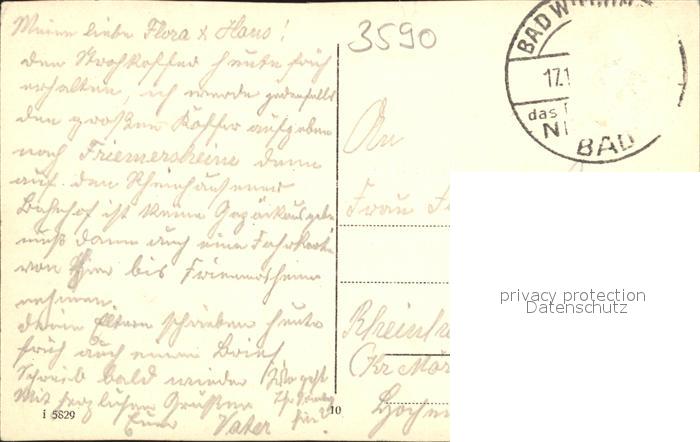 Meine liebe Flora & Hans!
den Strohkoffer heute früh
erhalten, ich werde jedenfalls
den großen Koffer aufgeben
nach Friemersheim denn
auf den Rheinhausener
Bahnhof ist keine Gepäckausgabe
muß dann auch eine Fahrkarte
von hier bis Friemersheim
nehmen.
Deine Eltern schrieben heute
früh auch einen Brief
Schreib bald wieder
Wie geht
Mit herzlichen Grüssen
Euer Vater
i 5829
10
3590
BAD
17.1
das
NI
BAD
An
Frau
Rheinh
(Kr Mör
privacy protection
Datenschutz